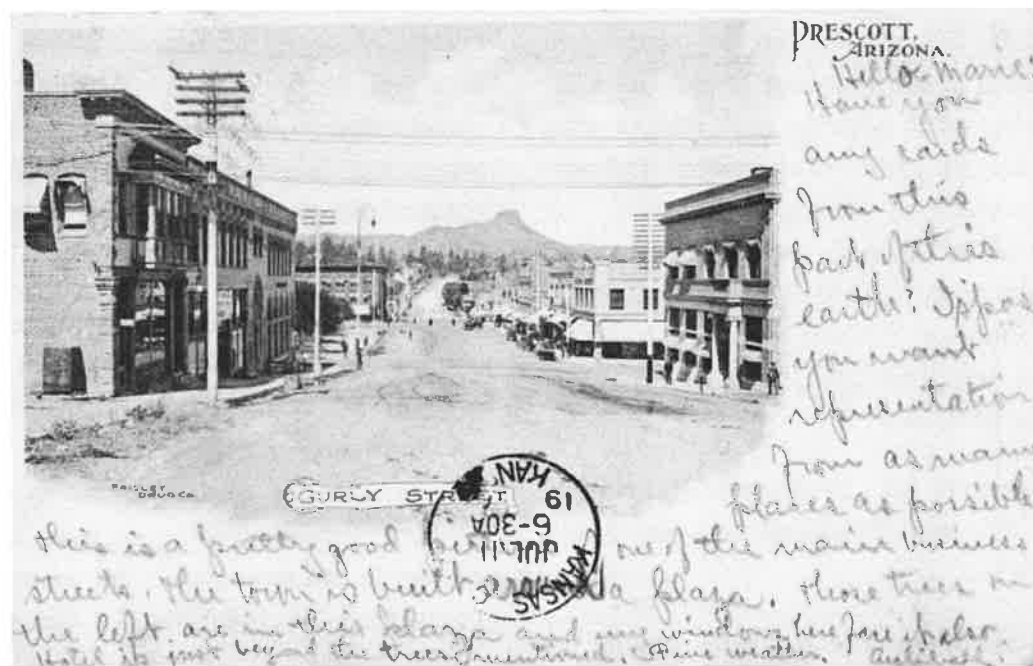 PRESCOTT,
ARIZONA.
Hello Marie
Have you
any cards
from this
part of this
earth?
you want
representation
from as many
places as possible
DRUG CO.
GURLY STREET
KANSAS KAN
19
6-30A
JUL 11
this is a pretty good one of the main business
streets. The town is built a plaza. Those trees on
the left are in this plaza and my windows here face it also
Hotel is just beyond the trees mentioned. Fine weather.